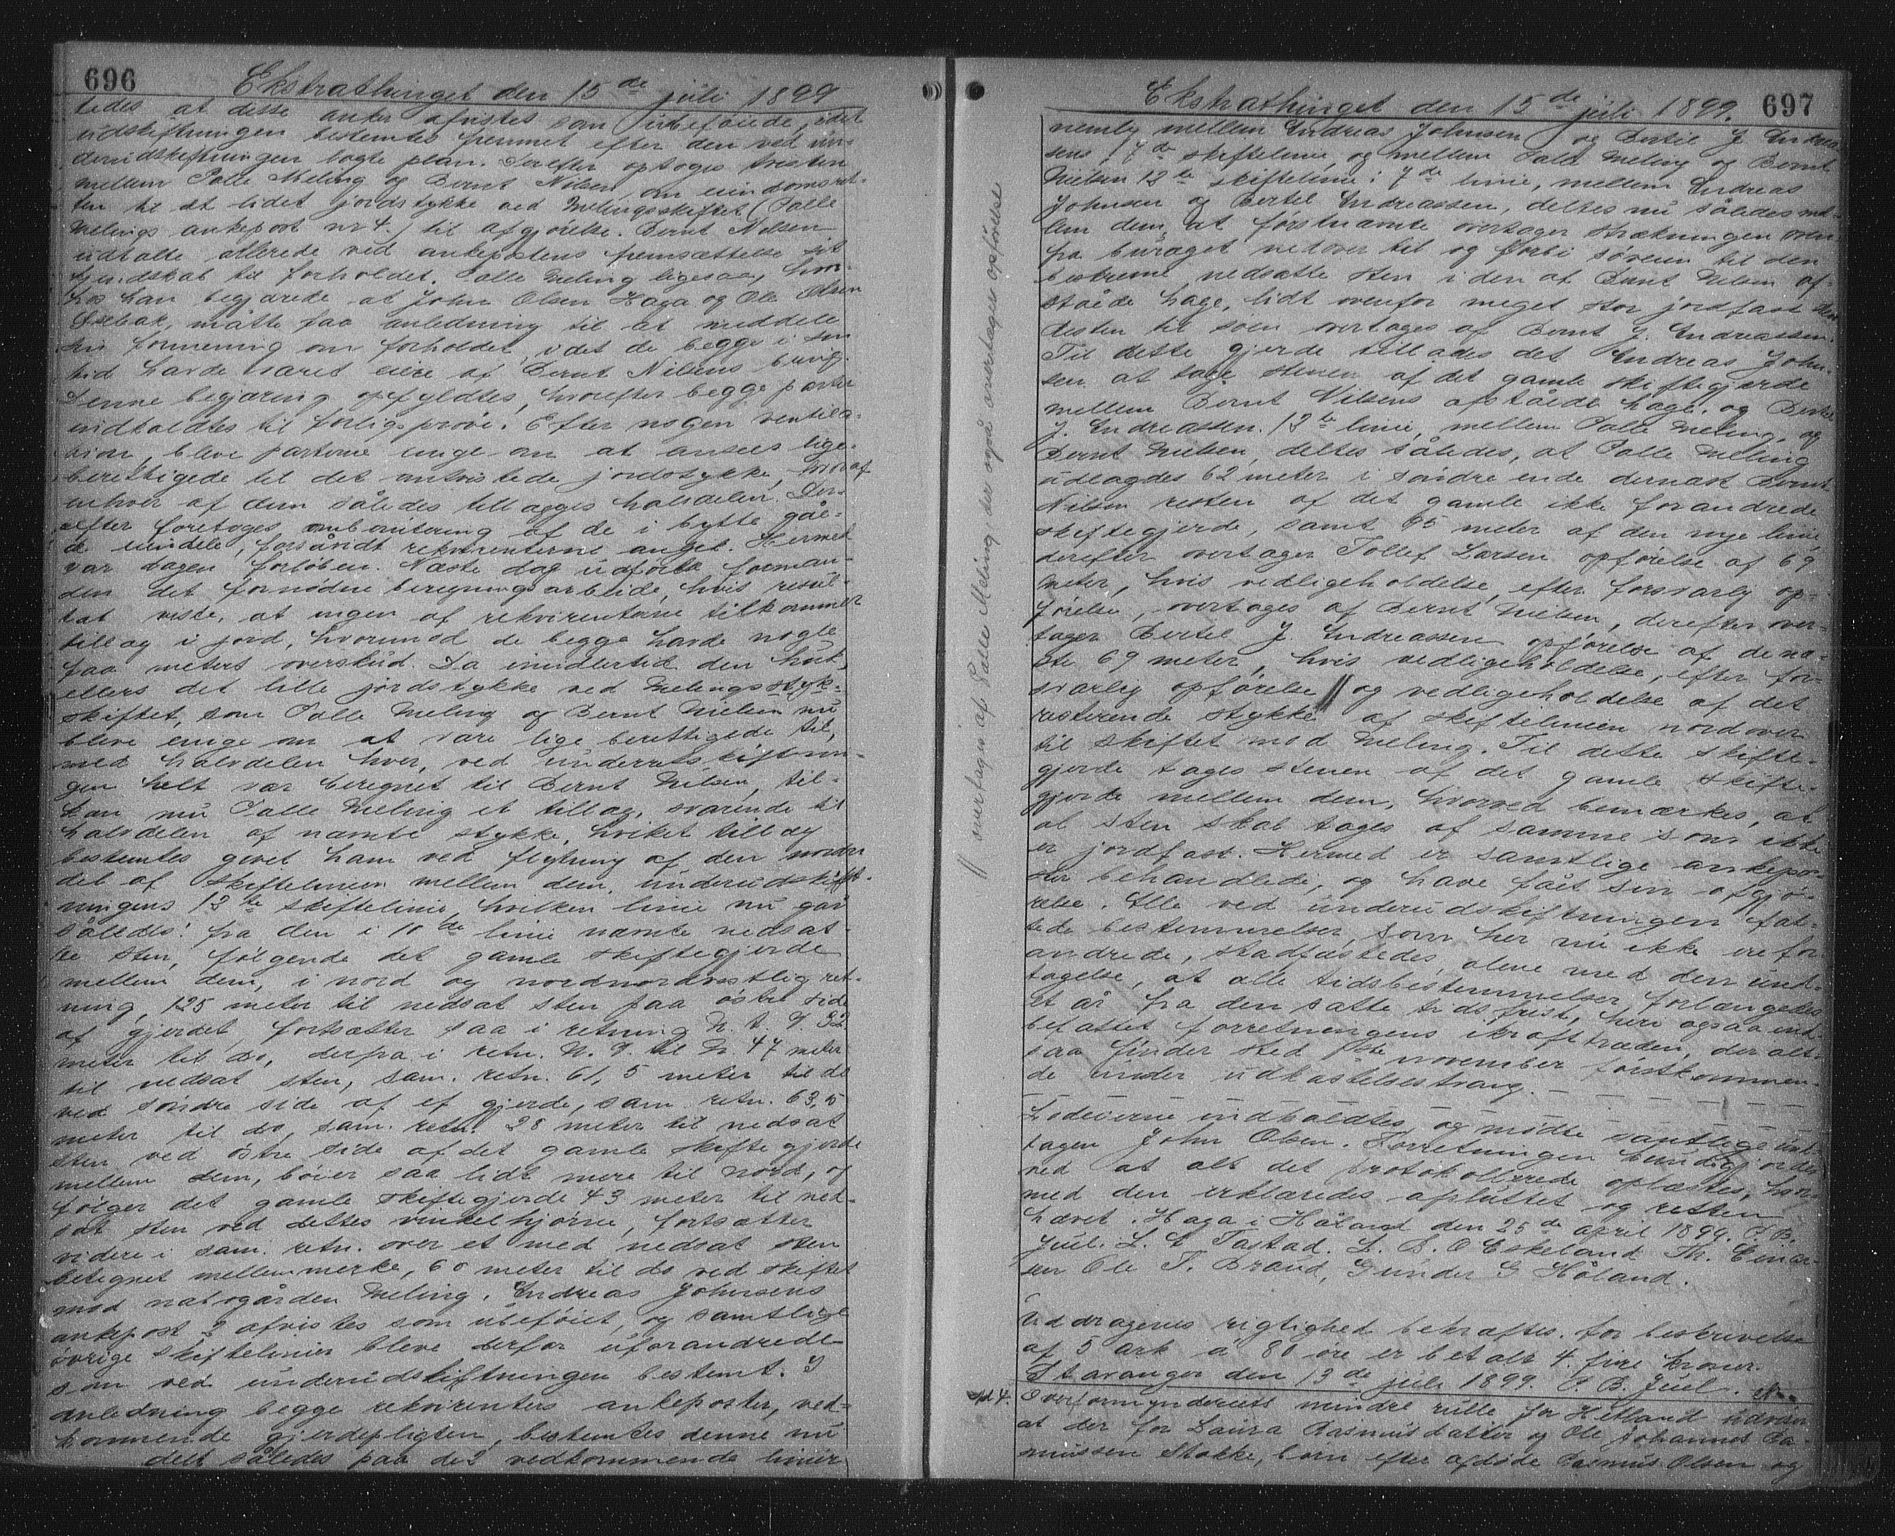 696
Ekstrathinget den 15de juli 1899
tedes at disse anker afvistes som ubeføiede, idet
udskiftningen bestemtes fremmet efter den ved un-
derudskiftningen lagte plan. Derefter optoges tvisten
mellem Palle Meling og Bernt Nilsen om eiendomsret-
ten til et lidet jordstykke ved Melingsskiftet (Palle
Melings ankepost nr 4.) til afgjørelse. Bernt Nilsen
udtalte allerede ved ankepostens fremsættelse sit
kjendskab til forholdet. Palle Meling ligesaa, hvor-
hos han begjærede at John Olsen Haga og Ole Olsen
måtte faa anledning til at meddele
sin formening om forholdet, idet de begge i sin
tid havde været eiere af Bernt Nilsens brug.
Denne begjæring opfyldtes, hvorefter begge parter
indkaldtes til forligsprøve. Efter nogen ventila-
sion, bleve parterne enige om at ansees lige-
berettigede til det omtvistede jordstykke, hvoraf
enhver af dem således tillægges halvdelen. Der-
efter foretoges ombonitering af de i bytte gåe-
de eiendele, forsåvidt rekvirenterne anget. Hermed
var dagen forløben. Næste dag udførte forman-
den det fornødne beregningsarbeide, hvis resul-
tat viste, at ingen af rekvirenterne tilkommer
tillæg i jord, hvorimod de begge havde nogle
faa meters overskud. Da imidlertid den
ellers det lille jordstykke ved Melingsstyk-
skiftet, som Palle Meling og Bernt Nielsen nu
bleve enige om at være lige berettigede til,
med halvdelen hver, ved underudskiftnin-
gen helt var beregnet til Bernt Nielsen, til-
kan nu Palle Meling et tillæg, svarende til
halvdelen af nævnte stykke, hvilket tillæg
bestemtes givet ham ved flytning af den nordre
del af skiftelinien mellem dem, underudskift-
ningens 12te skiftelinie, hvilken linie nu går
således: fra den i 10de linie nævnte nedsat-
te sten, følgende det gamle skiftegjerde
mellem dem, i nord og nordnordvestlig ret-
ning, 125 meter til nedsat sten paa østre side
af gjerdet fortsætter saa i retning N. t. V. 32
meter til do, derfra i retn. N. V. til N. 47 meter
til nedsat sten, sam. retn. 61,5 meter til do
ved søndre side af et gjerde, sam retn. 63,5
meter til do, sam. retn. 28 meter til nedsat
sten ved østre side af det gamle skiftegjerde
mellem dem, bøier saa lidt mere til nord, og
følger det gamle skiftegjerde 43 meter til ned-
sat sten ved dettes vinkelhjørne, fortsætter
videre i sam. retn. over et med nedsat sten
betegnet mellemmerke, 60 meter til do ved skiftet
mod nabogården Meling. Andreas Johnsens
ankepost 2 afvistes som ubeføiet, og samtlige
øvrige skiftelinier bleve derfor uforandrede
som ved underudskiftningen bestemt. I
anledning begge rekvirenters ankeposter, ved-
kommende gjerdepligten, bestemtes denne nu
delt således paa de 2 vedkommende linier
697
Ekstrathinget den 15de juli 1899.
nemlig mellem Andreas Johnsen og Bertil J. Andreas-
sens 17de skiftelinie, og mellem Palle Meling og Bernt
Nielsen 12te skiftelinie: 7de linie, mellem Andreas
Johnsen og Bertel Andreassen, deltes nu således mel-
lem dem, at førstnævnte overtager strækningen oven-
fra buraget nedover til og forbi søveien til den
bestemte nedsatte sten i den af Bernt Nilsen af-
ståede hage, lidt ovenfor meget stor jordfast sten
Resten til søen overtages af Bernt J. Andreassen.
Til dette gjerde tillades det Andreas John-
sen at tage stenen af det gamle skiftegjerde
mellem Bernt Nilsens afståede hage, og Bertel
J. Andreassen. 12te linie, mellem Palle Meling og
Bernt Nielsen, deltes således, at Palle Meling
udlagdes 62 meter i søndre ende dernæst Bernt
Nilsen resten af det gamle ikke forandrede
skiftegjerde, samt 95 meter af den nye linie
derefter overtager Tollef Larsen opførelse af 69
meter, hvis vedligeholdelse, efter forsvarlig op-
førelse, overtages af Bernt Nielsen, derefter over-
tager Bertel J. Andreassen opførelse af de næ-
ste 69 meter, hvis vedligeholdelse, efter for-
svarlig opførelse // og vedligeholdelse af det
resterende stykke af skiftelinien nordover
til skiftet mod Meling. Til dette skifte-
gjerde tages stenen af det gamle skifte-
gjerde mellem dem, hvorved bemærkes, at
al sten skal tages af samme som ikke
er jordfast. Hermed er samtlige ankepo-
ster behandlede, og have fået sin afgjø-
relse. Alle ved underudskiftningen fat-
tede bestemmelser, som her nu ikke ere for-
andrede, stadfæstedes, alene med den und-
tagelse, at alle tidsbestemmelser, forlængedes
et år fra den satte tidsfrist, heri ogsaa ind-
befattet forretningens ikrafttræden, der alt-
saa finder sted 1ste november førstkommen-
de under udkastelsestvang.
Lodeierne indkaldtes og mødte samtlige und-
tagen John Olsen. Forretningen kundgjordes
ved at alt det protokollerede oplæstes, hvor-
med den erklæredes afsluttet og retten
hævet. Haga i Håland den 25de april 1899. P. B.
Juul. L. A Tastad. L. B. O Eskeland Th. Einar-
sen Ole T. Brand, Gunder G Håland.
Uddragenes rigtighed bekræftes. for beskrivelse
af 5 ark á 80 øre er betalt 4. fire kroner.
Stavanger den 13de juli 1899. P. B. Juul.
Overformynderiets mindre rulle for Hetland udviser
at der for Laura Rasmusdatter og Ole Johannes Ra-
mussen Stokke, børn efter afdøde Rasmus Olsen og
// overtages af Palle Meling, der også overtager opførelse